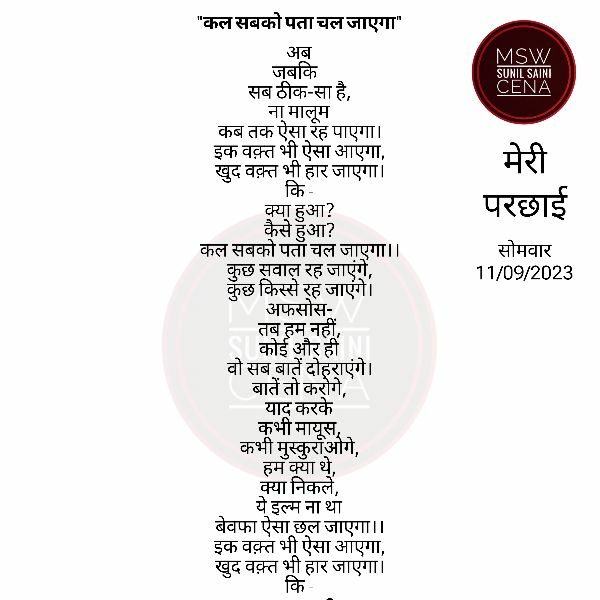 "कल सबको पता चल जाएगा"
अब
जबकि
सब ठीक-सा है,
ना मालूम
कब तक ऐसा रह पाएगा।
इक वक़्त भी ऐसा आएगा,
खुद वक़्त भी हार जाएगा।
कि -
क्या हुआ?
कैसे हुआ?
कल सबको पता चल जाएगा।।
कुछ सवाल रह जाएंगे,
कुछ किस्से रह जाएंगे।
अफसोस-
तब हम नहीं,
कोई और ही
वो सब बातें दोहराएंगे।
बातें तो करोगे,
याद करके
कभी मायूस,
कभी मुस्कुराओगे,
हम क्या थे,
क्या निकले,
ये इल्म ना था
बेवफा ऐसा छल जाएगा।।
इक वक़्त भी ऐसा आएगा,
खुद वक़्त भी हार जाएगा।
कि -
MSW
SUNIL SAINI
CENA
मेरी
परछाई
सोमवार
11/09/2023
MSW
SUNIL SAINI
CENA